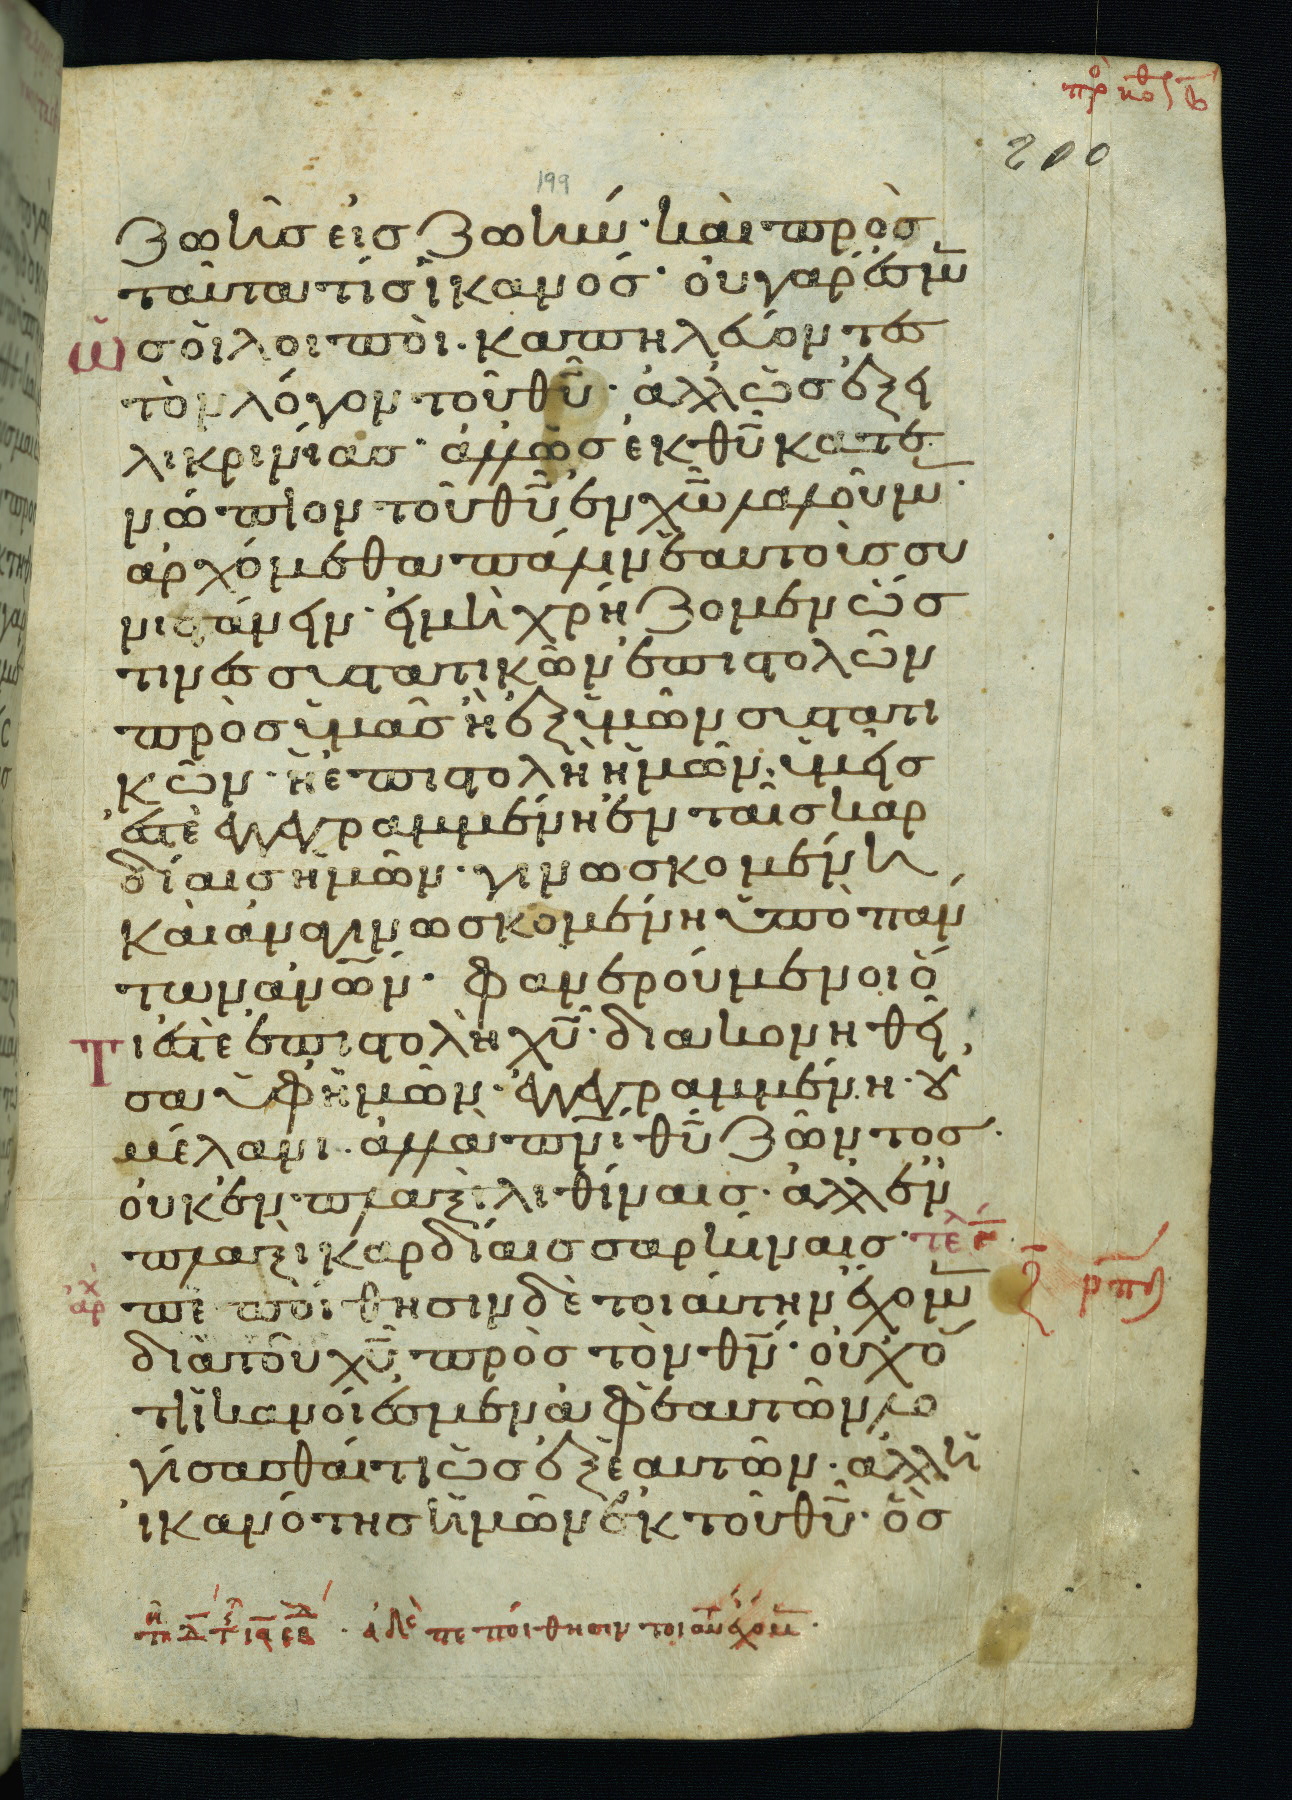 πρ κοθ β
200
199
ζωῆς εἰς ζωήν· καὶ πρὸς
ταῦτα τίς ἱκανός· οὐ γάρ ἐσμ̅
ὡς οἱ λοιποὶ· καπηλεύοντες
τὸν λόγον τοῦ θυ̅· ἀλλ' ὡς ἐξ εἰ
λικρινείας· ἀλλ' ὡς ἐκ θυ̅ κατε
νώπιον τοῦ θυ̅ ἐν χω̅ λαλοῦμ̅·
ἀρχόμεθα πάλιν ἑαυτοὺς συ
νιστάνειν· εἰ μὴ χρήζομεν ὥς
τινες συστατικῶν ἐπιστολῶν
πρὸς ὑμᾶς ἢ ἐξ ὑμῶν συστατι
κῶν· ἡ ἐπιστολὴ ἡμῶν· ὑμεῖς
ἐστὲ ἐγγεγραμμένη ἐν ταῖς καρ
δίαις ἡμῶν· γινωσκομένη
καὶ ἀναγινωσκομένη ὑπὸ πάν
των ἀνω̅ν· φανερούμενοι ὅ
τι ἐστὲ ἐπιστολὴ χυ̅· διακονηθεῖ
σα ὑφ' ἡμῶν· ἐγγεγραμμένη· οὐ
μέλανι· ἀλλὰ πνι̅ θυ̅ ζῶντος·
οὐκ ἐν πλαξὶ λιθίναις· ἀλλ' ἐν
πλαξὶ καρδίαις σαρκίναις· τελ
ἀρχ πεποίθησιν δὲ τοιαύτην ἔχομ̅
διὰ τοῦ χυ̅ πρὸς τὸν θν̅· οὐχ ὅ
τι ἱκανοί ἐσμεν ἀφ' ἑαυτῶν λο
γίσασθαί τι ὡς ἐξ ἑαυτῶν· ἀλλ' ἡ
ἱκανότης ἡμῶν ἐκ τοῦ θυ̅· ὃς
ἀδε πεποίθησιν τοιαύτ ἔχομ̅·